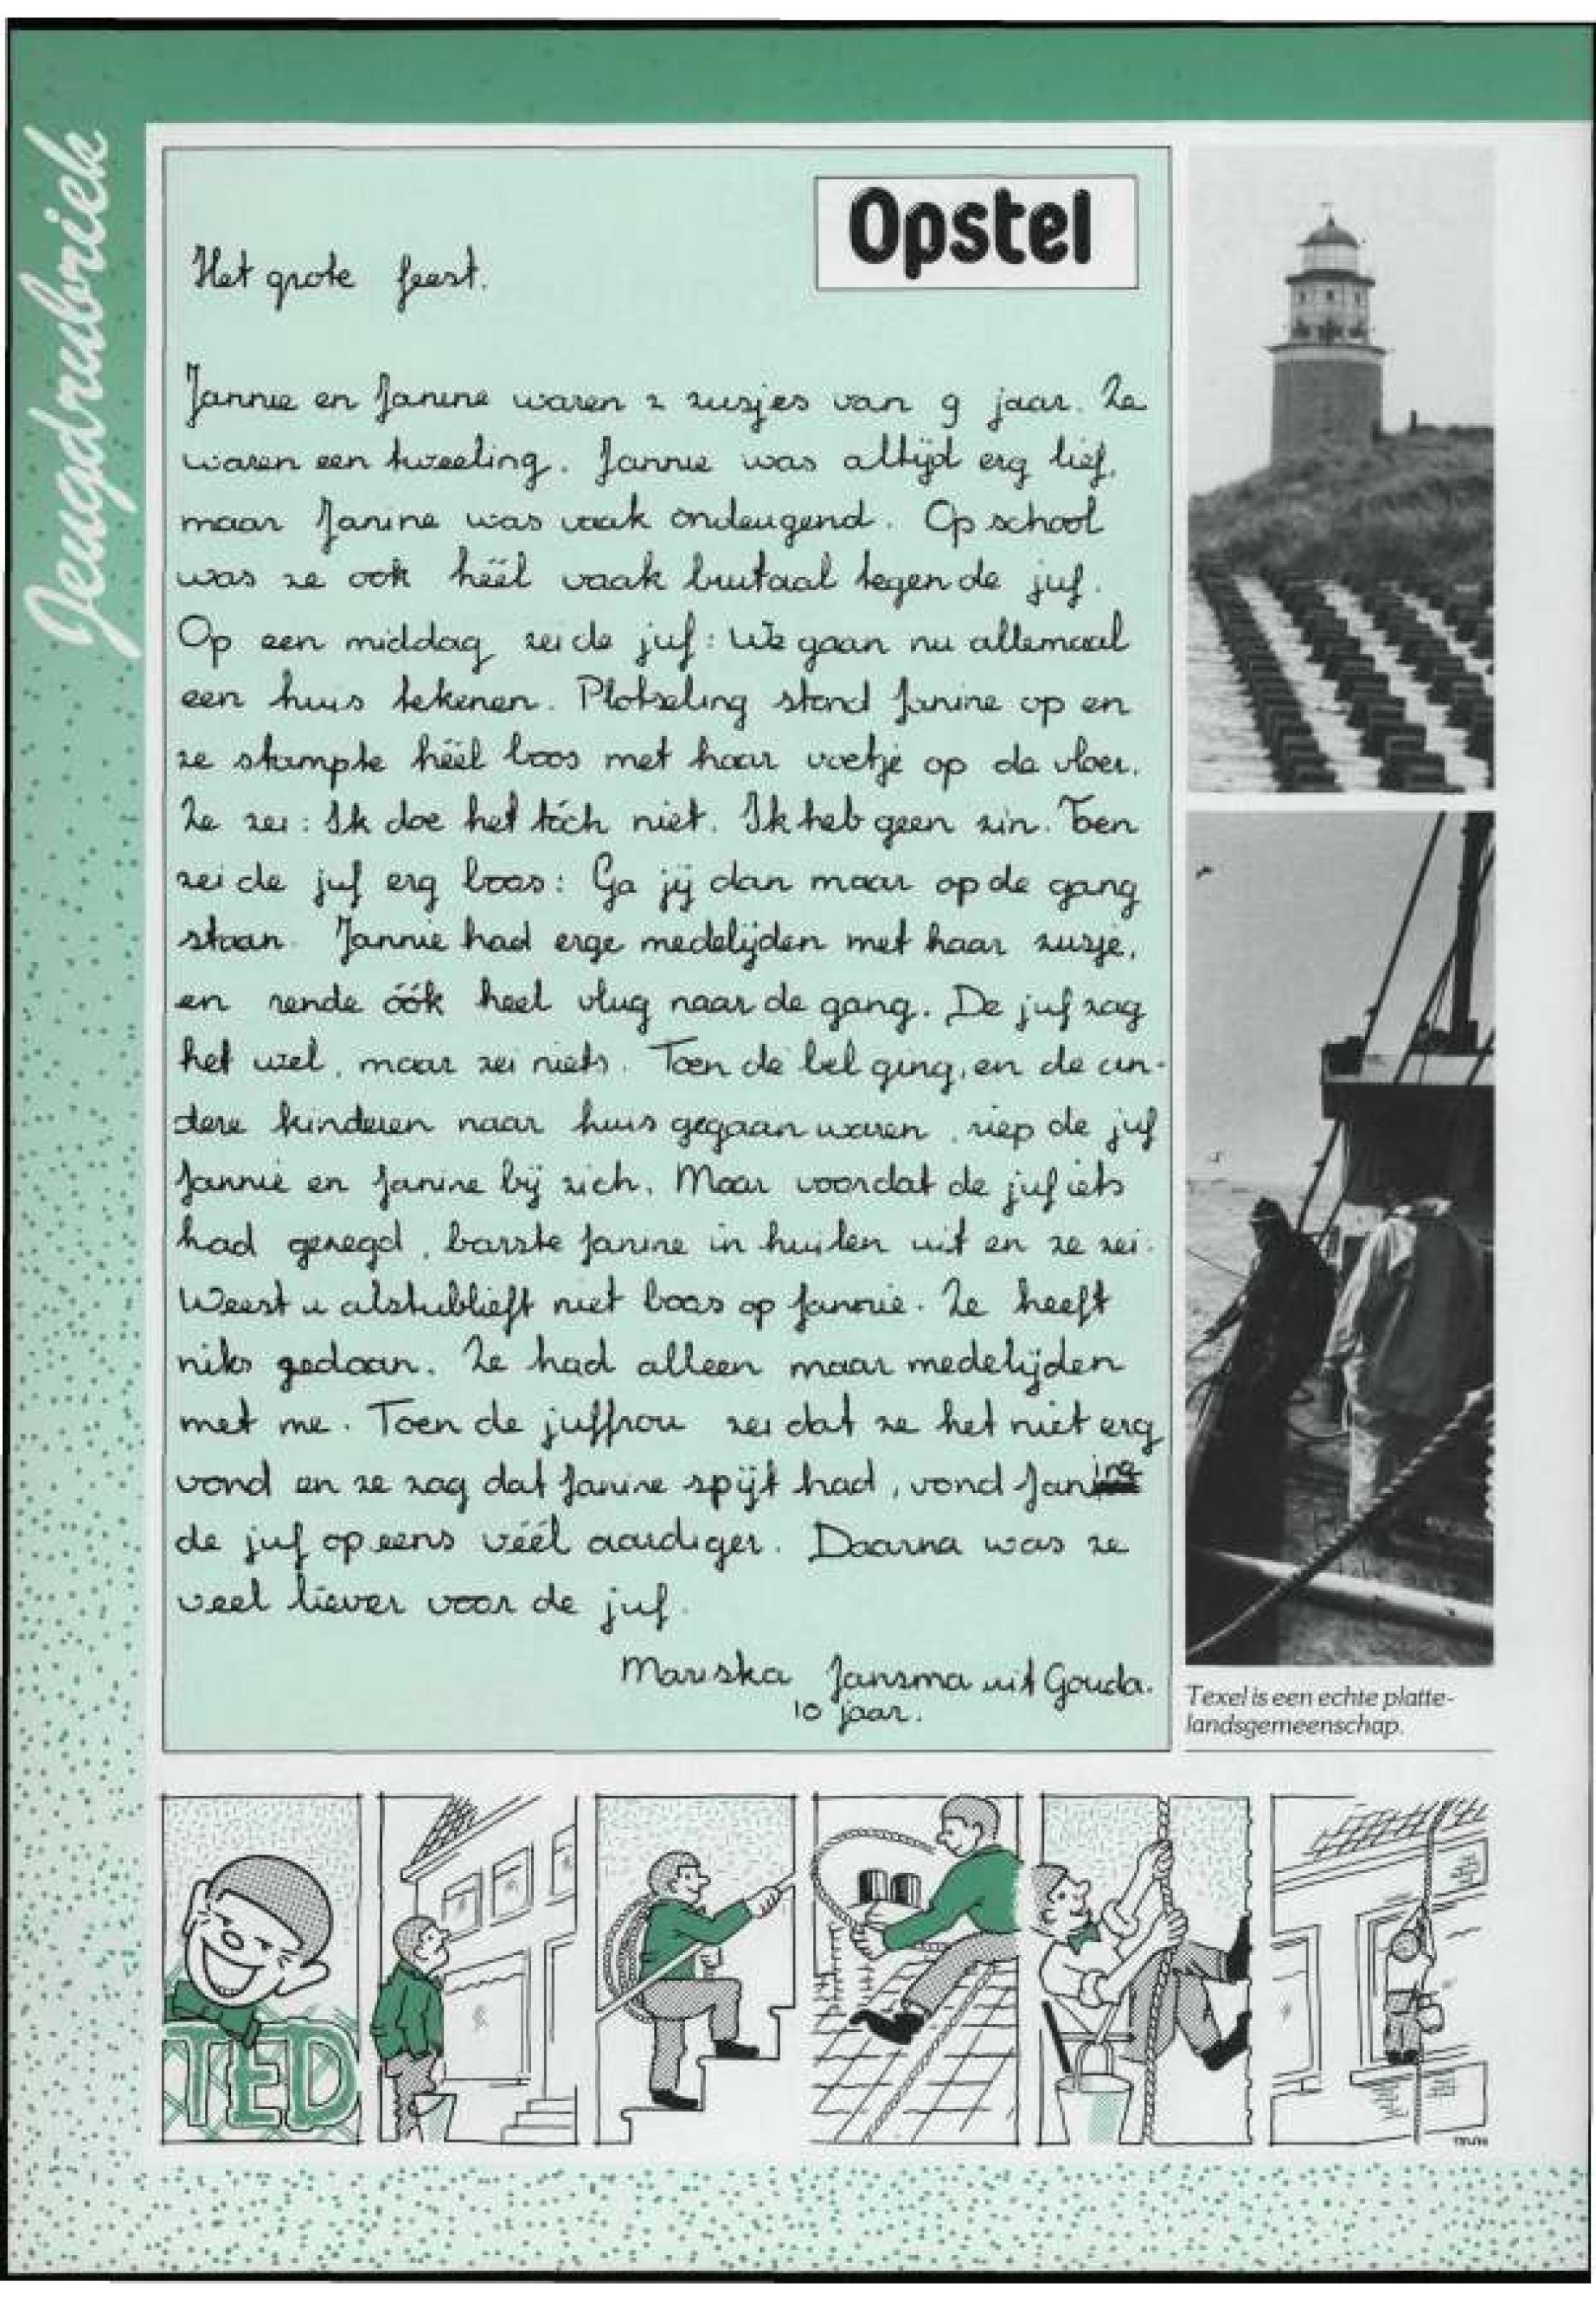 Jeugdrubriek
Opstel
Het grote feest.
Jannie en Janine waren 2 zusjes van 9 jaar. Ze
waren een tweeling. Jannie was altijd erg lief,
maar Janine was vaak ondeugend. Op school
was ze ook héél vaak brutaal tegen de juf.
Op een middag zei de juf: We gaan nu allemaal
een huis tekenen. Plotseling stond Janine op en
ze stampte héél boos met haar voetje op de vloer.
Ze zei: Ik doe het tóch niet. Ik heb geen zin. Toen
zei de juf erg boos: Ga jij dan maar op de gang
staan. Jannie had erge medelijden met haar zusje,
en rende óók heel vlug naar de gang. De juf zag
het wel, maar zei niets. Toen de bel ging, en de an-
dere kinderen naar huis gegaan waren, riep de juf
Jannie en Janine bij zich. Maar voordat de juf iets
had gezegd, barste Janine in huilen uit en ze zei:
Weest u alstublieft niet boos op Jannie. Ze heeft
niks gedaan. Ze had alleen maar medelijden
met me. Toen de juffrou zei dat ze het niet erg
vond en ze zag dat Janine spijt had, vond Janine
de juf opeens véél aardiger. Daarna was ze
veel liever voor de juf.
Mariska Jansma uit Gouda.
10 jaar.
Texel is een echte platte-
landsgemeenschap.
TED